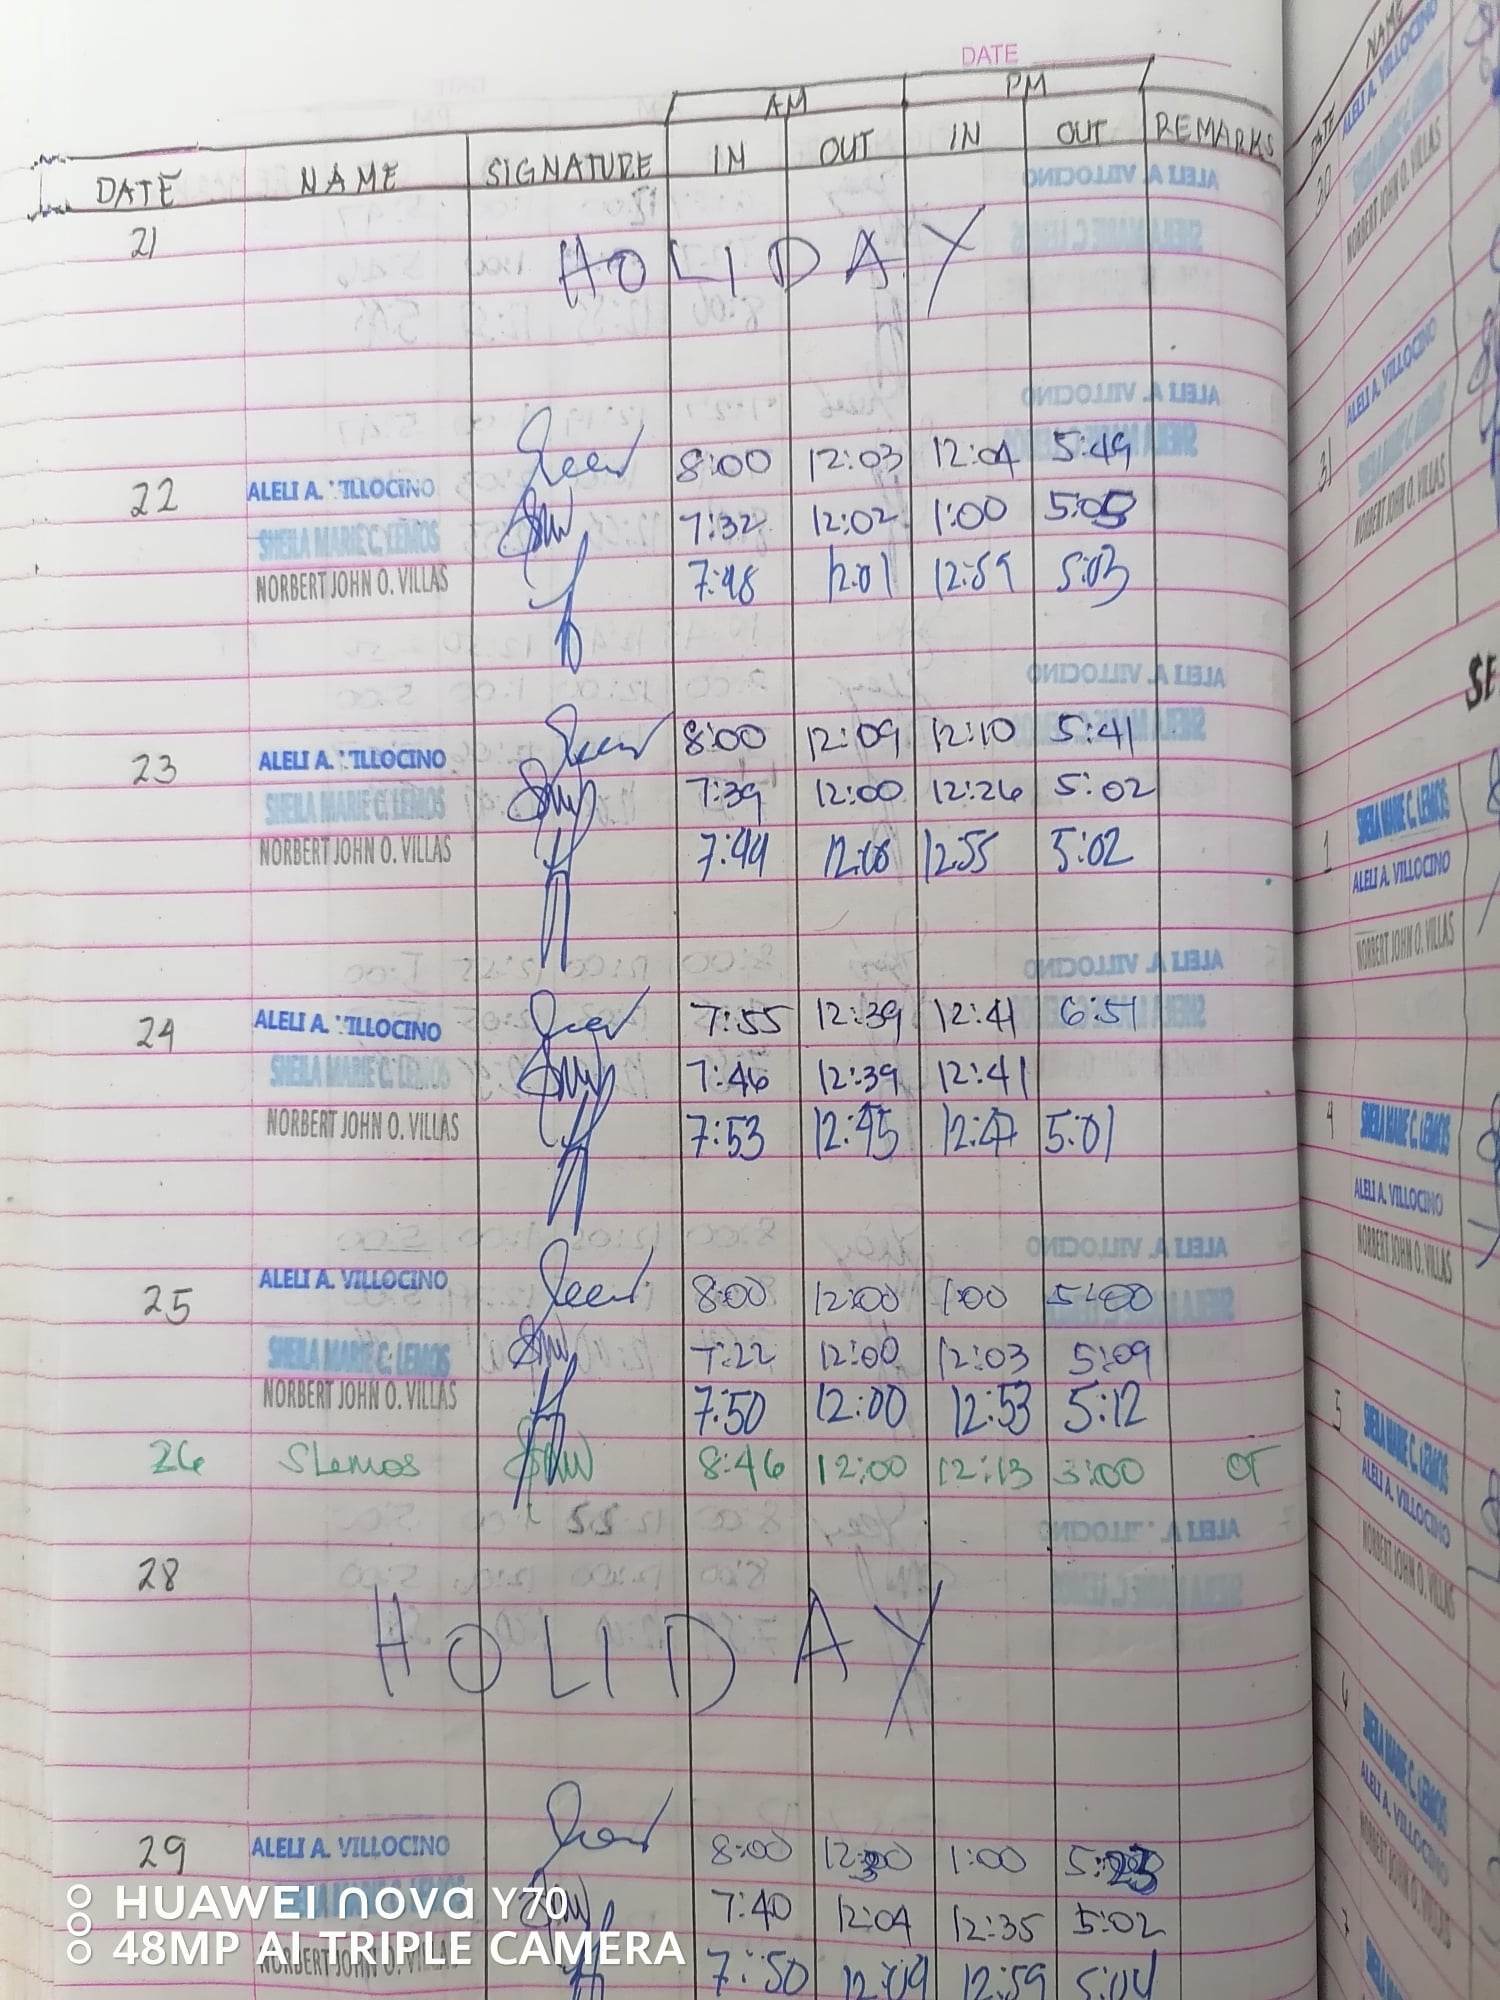 DATE
AM PM
DATE NAME SIGNATURE IN OUT IN OUT REMARKS
21 HOLIDAY
22 ALELI A. VILLOCINO 8:00 12:03 12:04 5:49
SHEILA MARIE C. LEMOS 7:32 12:02 1:00 5:05
NORBERT JOHN O. VILLAS 7:48 12:01 12:59 5:03
23 ALELI A. VILLOCINO 8:00 12:09 12:10 5:41
SHEILA MARIE C. LEMOS 7:39 12:00 12:26 5:02
NORBERT JOHN O. VILLAS 7:44 12:55 5:02
24 ALELI A. VILLOCINO 7:55 12:39 12:41 6:51
SHEILA MARIE C. LEMOS 7:46 12:39 12:41
NORBERT JOHN O. VILLAS 7:53 12:45 12:47 5:01
25 ALELI A. VILLOCINO 8:00 12:00 1:00 5:00
SHEILA MARIE C. LEMOS 7:22 12:00 12:03 5:09
NORBERT JOHN O. VILLAS 7:50 12:00 12:53 5:12
26 SLemos 8:46 12:00 12:13 3:00 OT
28 HOLIDAY
29 ALELI A. VILLOCINO 8:00 1:00
7:40 12:04 12:35 5:02
NORBERT JOHN O. VILLAS 7:50 12:09 12:59 5:04
HUAWEI nova Y70
48MP AI TRIPLE CAMERA
DATE NAME
30 ALELI A. VILLOCINO
SHEILA MARIE C. LEMOS
NORBERT JOHN O. VILLAS
31 ALELI A. VILLOCINO
SHEILA MARIE C. LEMOS
NORBERT JOHN O. VILLAS
SE
1 SHEILA MARIE C. LEMOS
ALELI A. VILLOCINO
NORBERT JOHN O. VILLAS
4 SHEILA MARIE C. LEMOS
ALELI A. VILLOCINO
NORBERT JOHN O. VILLAS
5 SHEILA MARIE C. LEMOS
ALELI A. VILLOCINO
NORBERT JOHN O. VILLAS
6 SHEILA MARIE C. LEMOS
ALELI A. VILLOCINO
NORBERT JOHN O. VILLAS
7